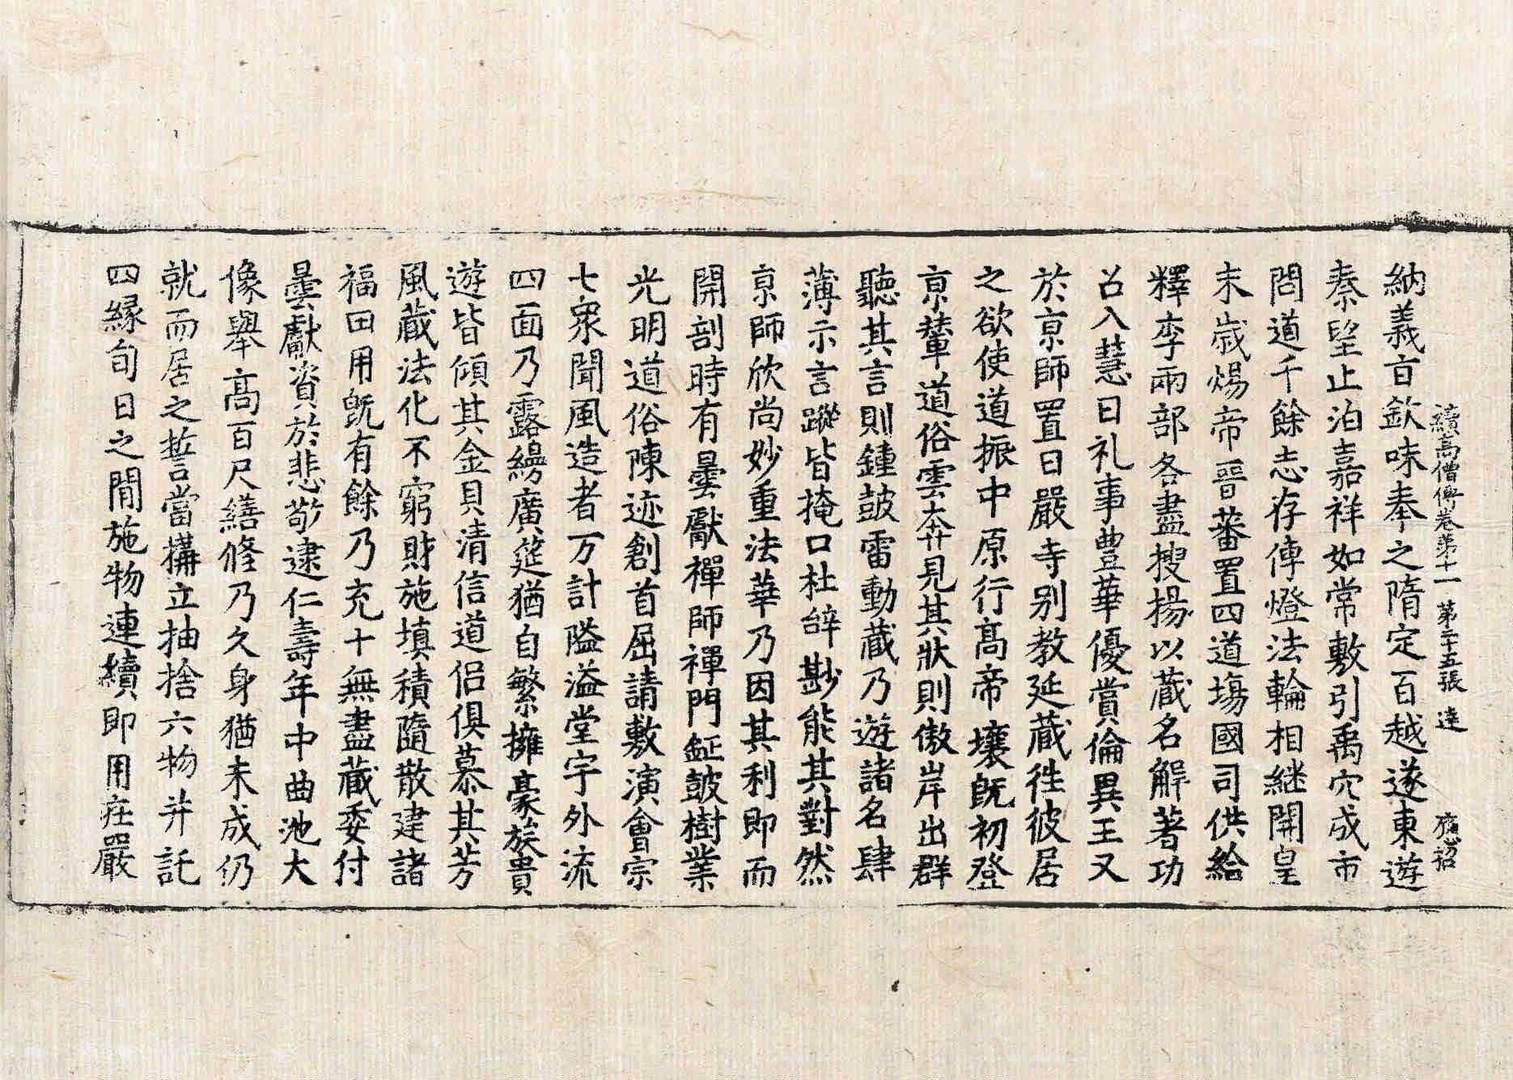 續高僧傳卷第十一　第二十五張　達
納義旨欽味奉之隋定百越遂東遊
秦望止泊嘉祥如常敷引禹穴成市
問道千餘志存傳燈法輪相継開皇
末歲煬帝晋蕃置四道場國司供給
釋李兩部各盡搜揚以藏名解著功
召入慧日礼事豊華優賞倫異王又
於京師置日嚴寺別教延藏往彼居
之欲使道振中原行高帝壤既初登
京輦道俗雲奔見其狀則傲岸出群
聽其言則鍾鼓雷動藏乃遊諸名肆
薄示言蹤皆掩口杜辝尠能其對然
京師欣尚妙重法華乃因其利即而
開剖時有曇獻禪師禪門鉦鼓樹業
光明道俗陳迹創首屈請敷演會宗
七衆聞風造者万計隘溢堂宇外流
四面乃露縵廣筵猶自繁擁豪族貴
遊皆傾其金貝清信道侣俱慕其芳
風藏法化不窮財施填積隨散建諸
福田用既有餘乃充十無盡藏委付
曇獻資於悲敬逮仁壽年中曲池大
像舉高百尺繕修乃久身猶未成仍
就而居之誓當搆立抽捨六物并託
四縁旬日之間施物連續即用庄嚴